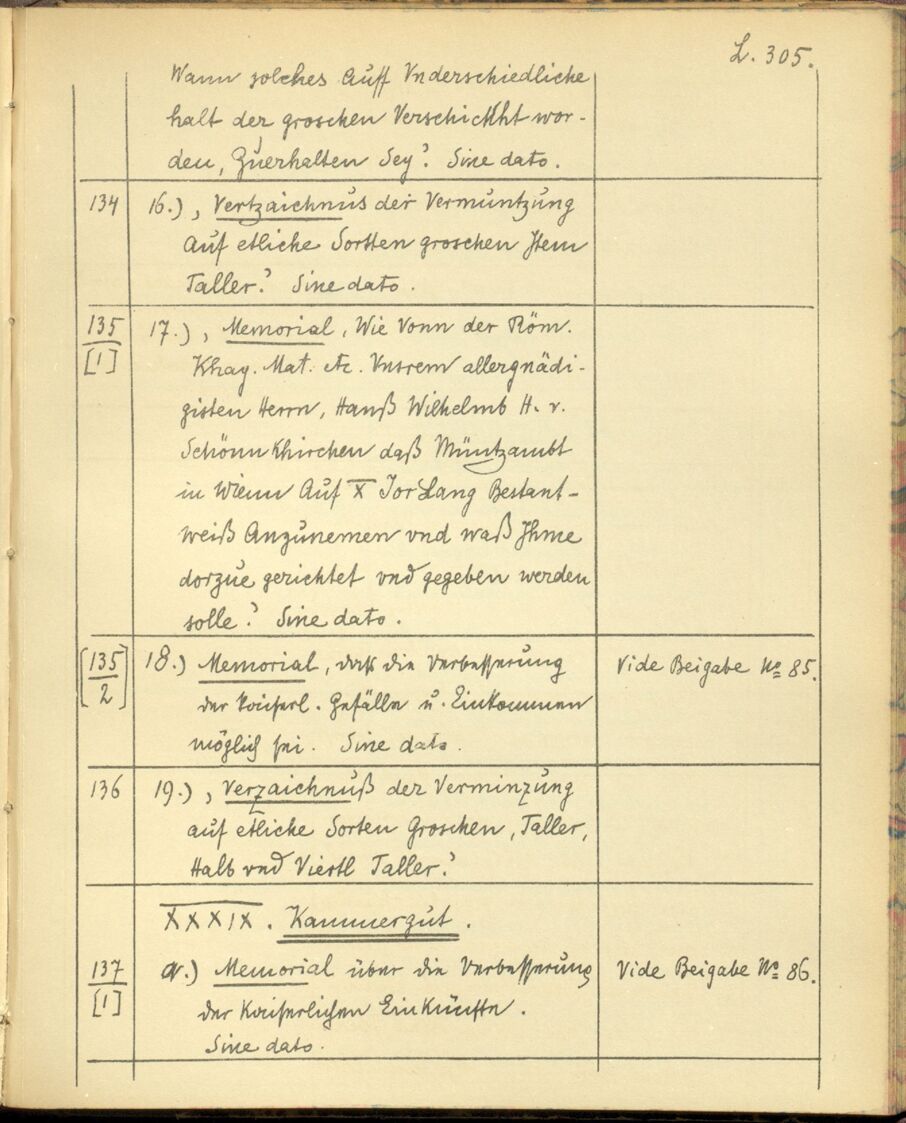 L. 305.
Wann solches Auff Vnderschiedliche
halt der groschen Verschickht wor-
den, Zuerhalten Sey? Sine dato.
134 16.) , Vertzaichnus der Vermüntzung
Auf etliche Sortten groschen Item
Taller.' Sine dato.
135 17.) , Memorial, Wie Vonn der Röm.
[1] Khay. Mat. etc. Vnsrem allergnädi-
gisten Herrn, Hanß Wilhelmb H. v.
Schönnkhirchen daß Müntzambt
in Wienn Auf X Jor Lang Bestant-
weiß Anzunemen vnd waß Ihme
dorzue gerichtet vnd gegeben werden
solle.' Sine dato.
[135 18.) Memorial, daß die Verbesserung Vide Beigabe No 85.
2] der kaiserl. Gefälle u. Einkommen
möglich sei. Sine dato.
136 19.) , Verzaichnuß der Verminzung
auf etliche Sorten Groschen, Taller,
Halb vnd Viertl Taller.'
XXXIX. Kammergut.
137 a.) Memorial über die Verbesserung Vide Beigabe No 86.
[1] der kaiserlichen Einkünfte.
Sine dato.